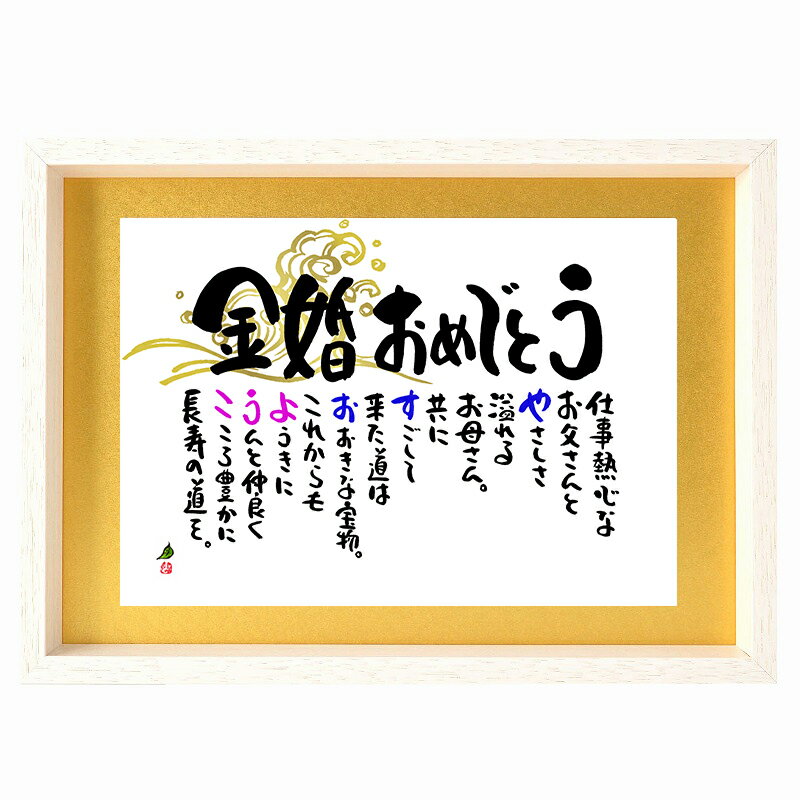 金婚おめでとう
仕事熱心な
お父さんと
やさしさ
溢れる
お母さん。
共に
すごして
来た道は
おおきな宝物。
これからも
ようきに
うんと仲良く
こころ豊かに
長寿の道を。